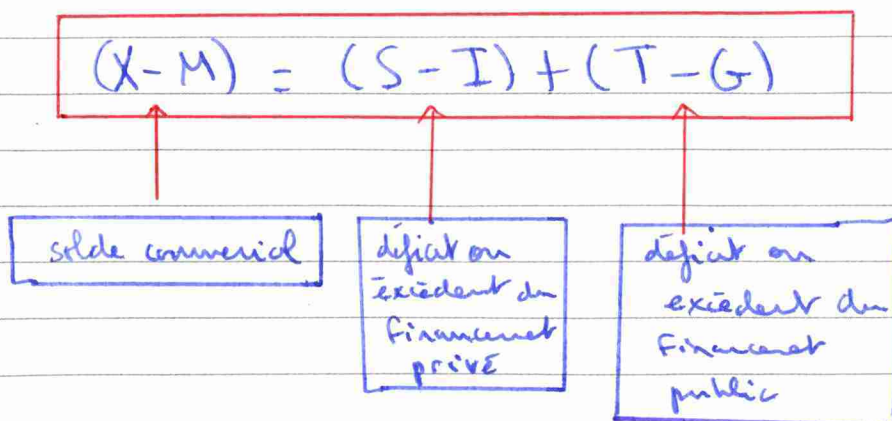 (X-M) = (S-I)+(T-G)
solde commercial
déficit ou
éxcédent du
financement
privé
déficit ou
excédent du
financement
public